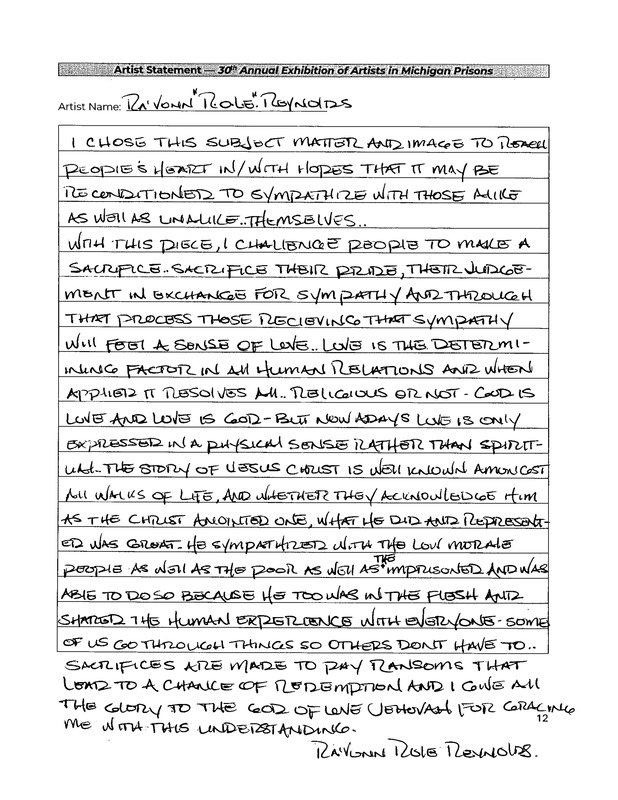 Artist Statement — 30th Annual Exhibition of Artists in Michigan Prisons
Artist Name: RA'VONN "ROLE" REYNOLDS
I CHOSE THIS SUBJECT MATTER AND IMAGE TO REACH
PEOPLE'S HEART IN/WITH HOPES THAT IT MAY BE
RECONDITIONED TO SYMPATHIZE WITH THOSE ALIKE
AS WELL AS UNALIKE..THEMSELVES..
WITH THIS PIECE, I CHALLENGE PEOPLE TO MAKE A
SACRIFICE..SACRIFICE THEIR PRIDE, THEIR JUDGE-
MENT IN EXCHANGE FOR SYMPATHY AND THROUGH
THAT PROCESS THOSE RECIEVING THAT SYMPATHY
WILL FEEL A SENSE OF LOVE.. LOVE IS THE DETERMI-
NING FACTOR IN ALL HUMAN RELATIONS AND WHEN
APPLIED IT RESOLVES ALL.. RELIGIOUS OR NOT - GOD IS
LOVE AND LOVE IS GOD - BUT NOWADAYS LOVE IS ONLY
EXPRESSED IN A PHYSICAL SENSE RATHER THAN SPIRIT-
UAL..THE STORY OF JESUS CHRIST IS WELL KNOWN AMONGST
ALL WALKS OF LIFE, AND WHETHER THEY ACKNOWLEDGE HIM
AS THE CHRIST ANOINTED ONE, WHAT HE DID AND REPRESENT-
ED WAS GREAT. HE SYMPATHIZED WITH THE LOW MORALE
PEOPLE AS WELL AS THE POOR AS WELL AS THE IMPRISONED AND WAS
ABLE TO DO SO BECAUSE HE TOO WAS IN THE FLESH AND
SHARED THE HUMAN EXPERIENCE WITH EVERYONE - SOME
OF US GO THROUGH THINGS SO OTHERS DONT HAVE TO..
SACRIFICES ARE MADE TO PAY RANSOMS THAT
LEAD TO A CHANCE OF REDEMPTION AND I GIVE ALL
THE GLORY TO THE GOD OF LOVE JEHOVAH FOR GRACING
ME WITH THIS UNDERSTANDING.
12
RA'VONN ROLE REYNOLDS.